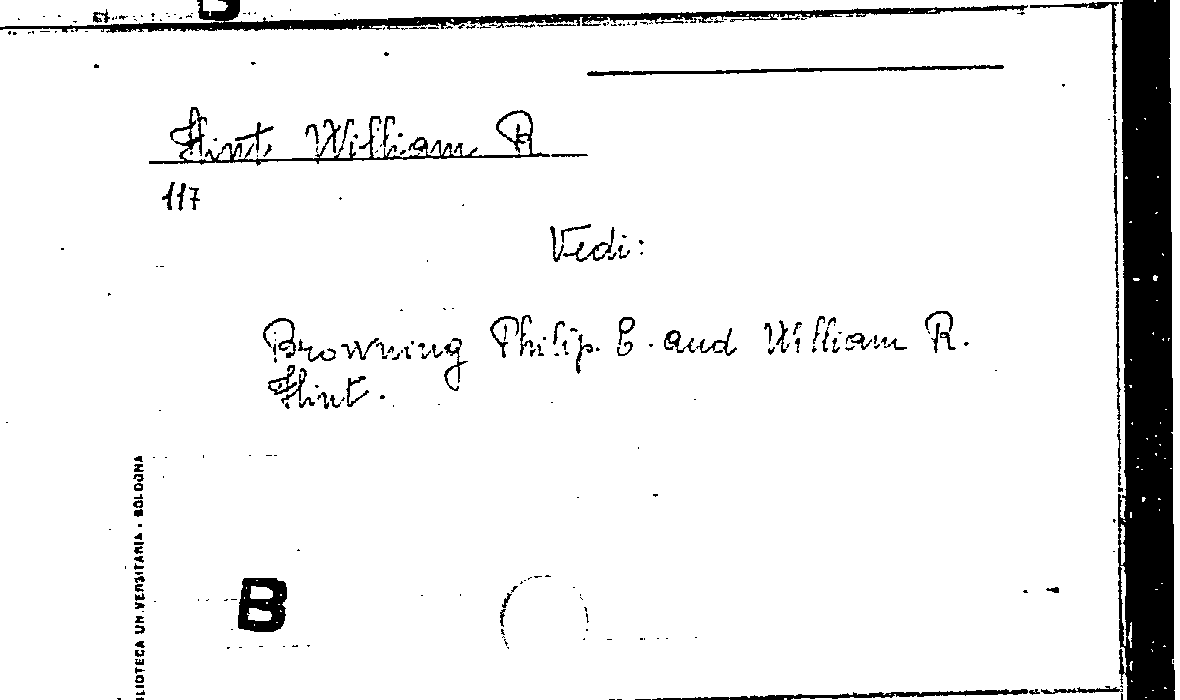 B
Flint William R
117
Vedi:
Browning Philip E. and William R.
Flint.
BLIOTECA UNIVERSITARIA - BOLOGNA
B